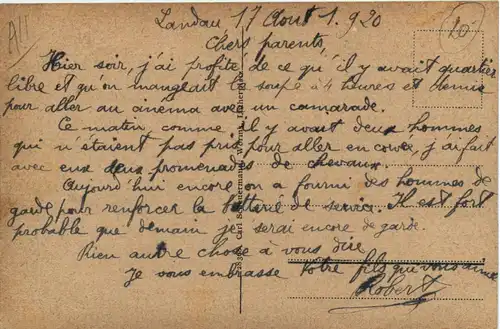 Landau 17 Aout 1.920
Chers parents,
Hier soir, j'ai profité de ce qu'il y avait quartier
libre et qu'on mangeait la soupe à 4 heures et demie
pour aller au cinéma avec un camarade.
Ce matin comme il y avait deux hommes
qui n'étaient pas pris pour aller en corvée, j'ai fait
avec eux deux promenades de chevaux.
Aujourd'hui encore on a fourni des hommes de
garde pour renforcer la batterie de service. Il est fort
probable que demain je serai encore de garde.
Rien autre chose à vous dire
Je vous embrasse Votre fils qui vous aime
Robert
Carl